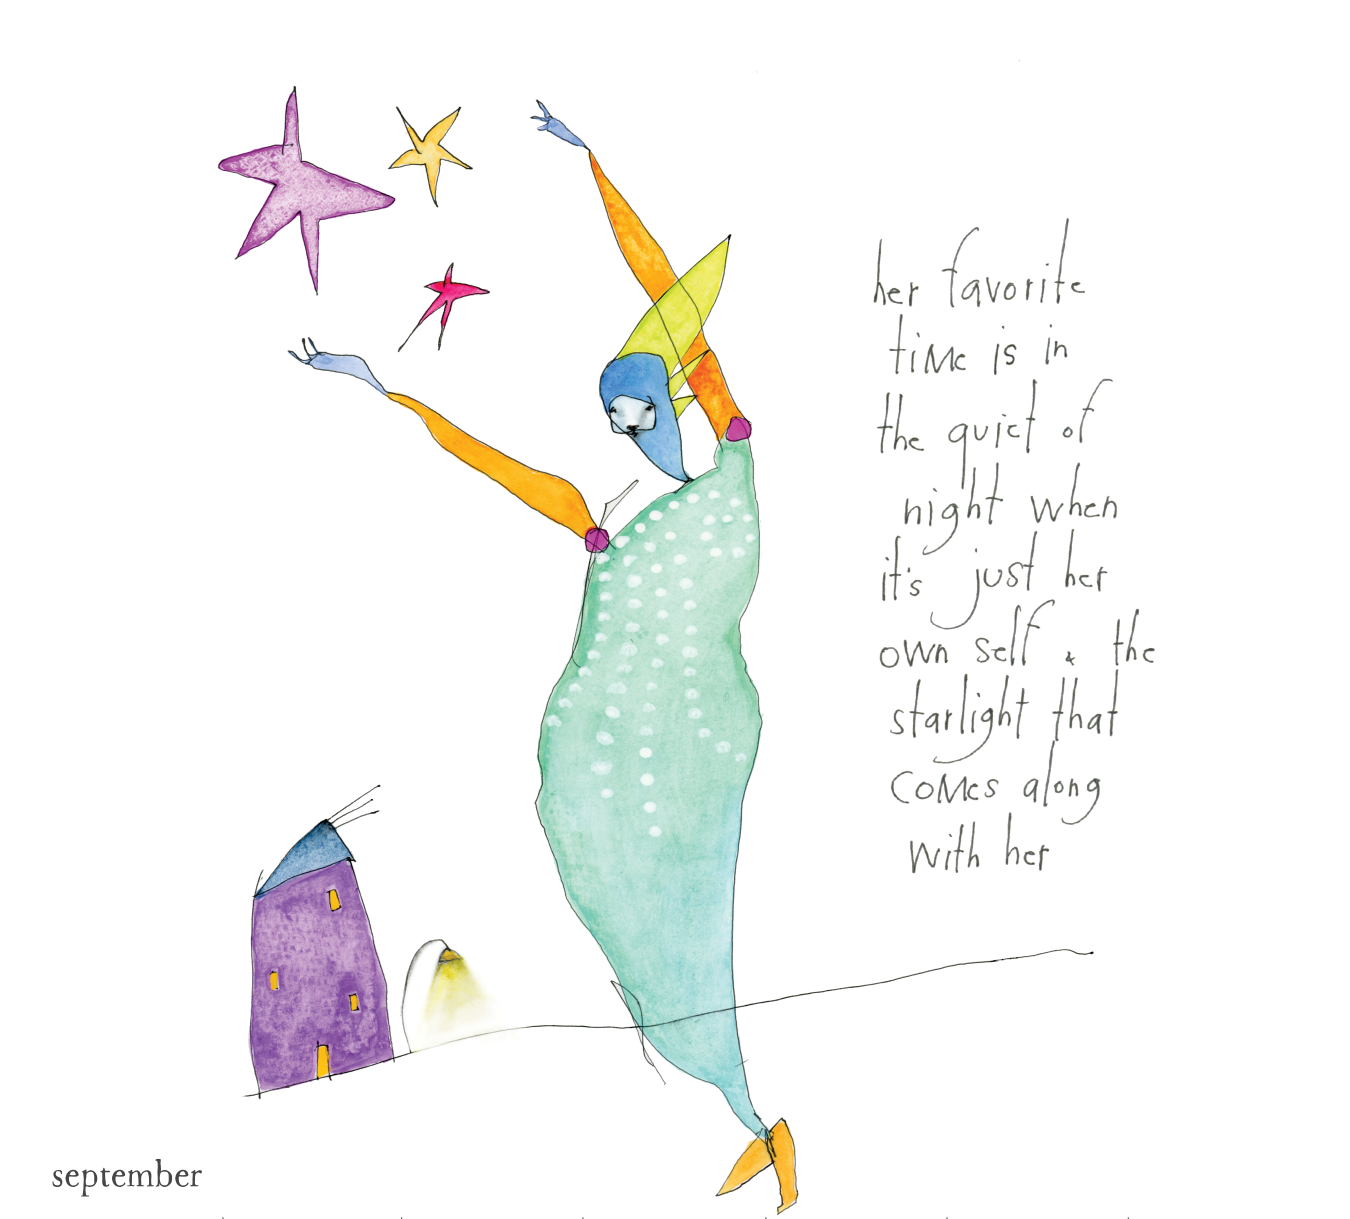 her favorite
time is in
the quiet of
night when
it's just her
own self & the
starlight that
comes along
with her
september